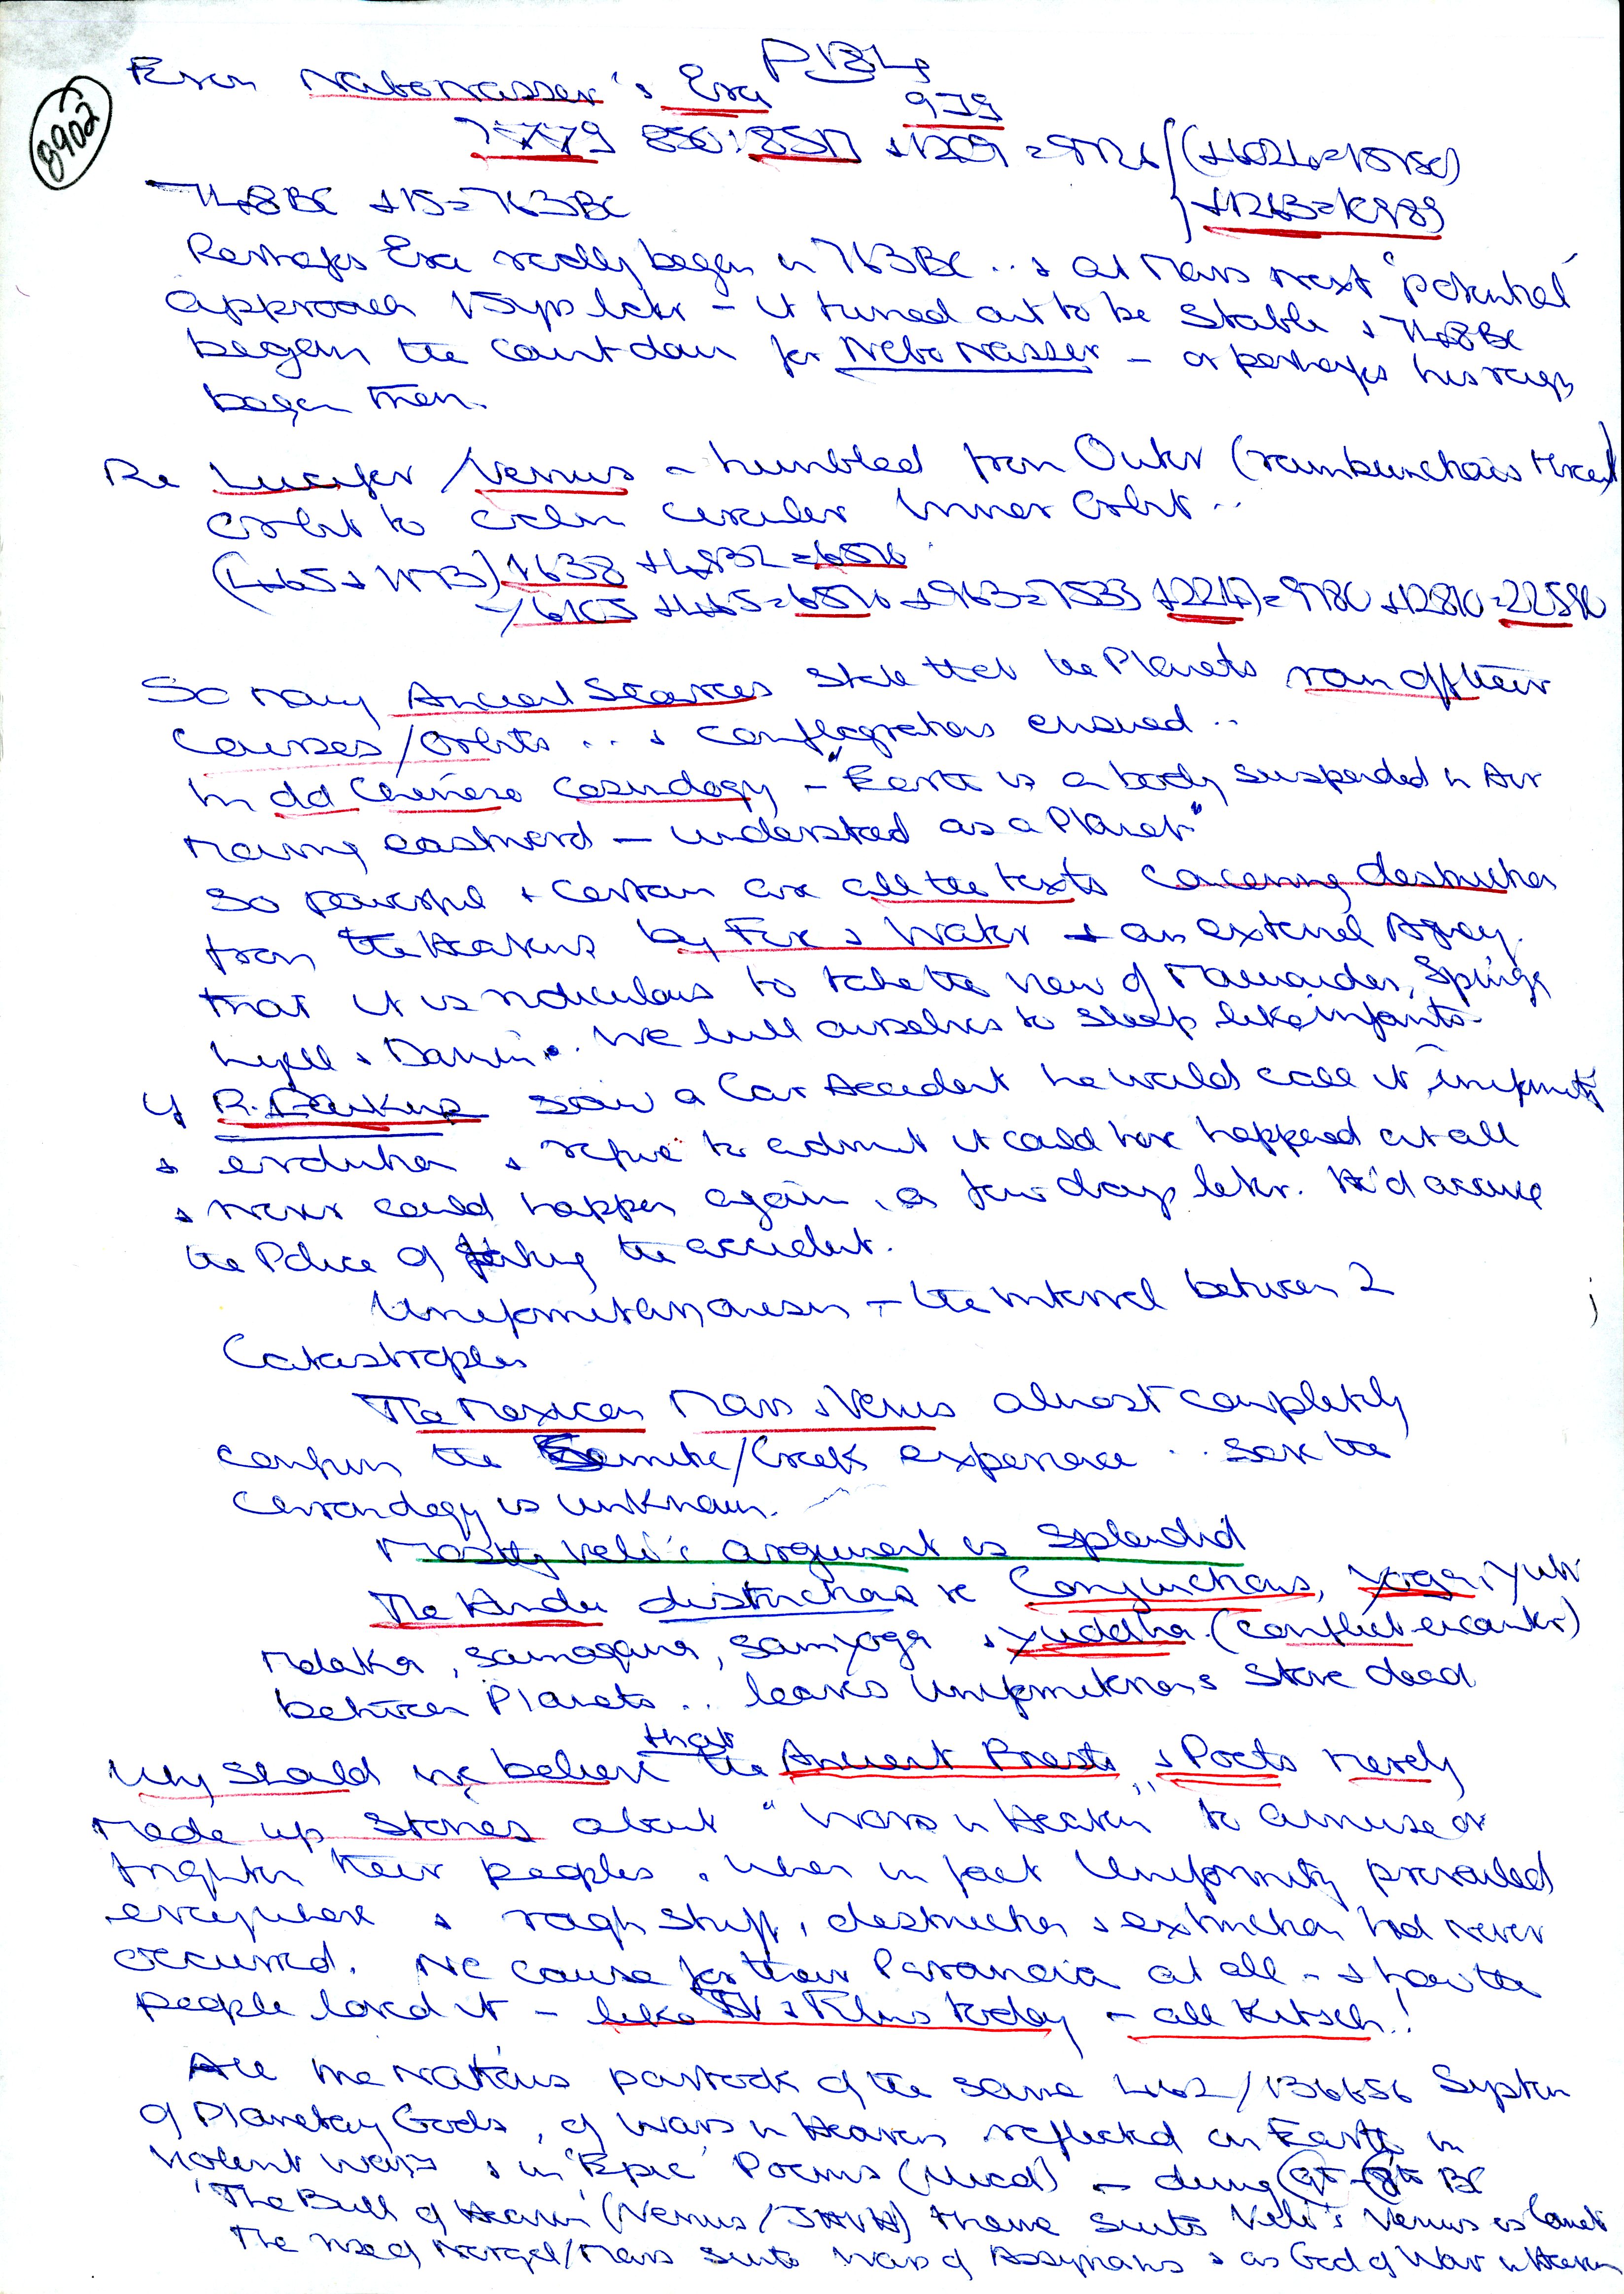 8902
From Nabonassar's Era
939
748BC +15=763BC
+1263=10989
Perhaps Era really began in 763BC .. & at Mars next "potential"
approach 15yrs later - it turned out to be stable & 748BC
began the countdown for Nebonasser - or perhaps his reign
began then.
Re Lucifer/Venus - humbled from Outer (rambunctious
Orbit to calm circular Inner Orbit ..
(465+1173) 1638 +4932=6570
6105 +465=6570 +963=7533 +2247=9780 +12810=22590
So many Ancient Sources state that the Planets ran off their
Courses/Orbits ... & conflagrations ensued ..
In old Chinese Cosmology - "Earth is a body suspended in Air
moving eastward - understood as a Planet"
So powerful & certain are all the texts concerning destruction
from the Heavens by Fire & Water & an external Agency
that it is ridiculous to take the view of
Lyell & Darwin. We lull ourselves to sleep like infants.
If R. Dawkins saw a Car Accident he would call it uniformity
& evolution & refuse to admit it could have happened at all
& never could happen again, a few days later. He'd accuse
the Police of faking the accident.
Uniformitarianism - the interval between 2
Catastrophes
The Mexican Mars & Venus almost completely
confirm the Semite/Greek experience .. save the
Chronology is unknown.
Mostly Veli's argument is splendid
The Hindu distinctions re Conjunctions, yoga, yuti
melaka, samagama, samyoga & yuddha (conflict encounter)
between Planets .. leaves Uniformitarians stone dead
Why should we believe that the Ancient Priests & Poets merely
made up stories about "Wars in Heaven" to amuse or
frighten their peoples, when in fact Uniformity prevailed
everywhere & rough stuff, destruction & extinction had never
occurred. No cause for their Paranoia at all - & how the
people loved it - like TV & Films today - all Kitsch!
All the Nations partook of the same 1462/136656 System
of Planetary Gods, of Wars in Heaven reflected on Earth in
violent wars & in 'Epic' Poems (Iliad) - during 9th-8th BC
'The Bull of Heaven' (Venus/JHVH) theme suits Veli's Venus as Comet
The rise of Nergal/Mars suits Wars of Assyrians & as God of War in Heaven